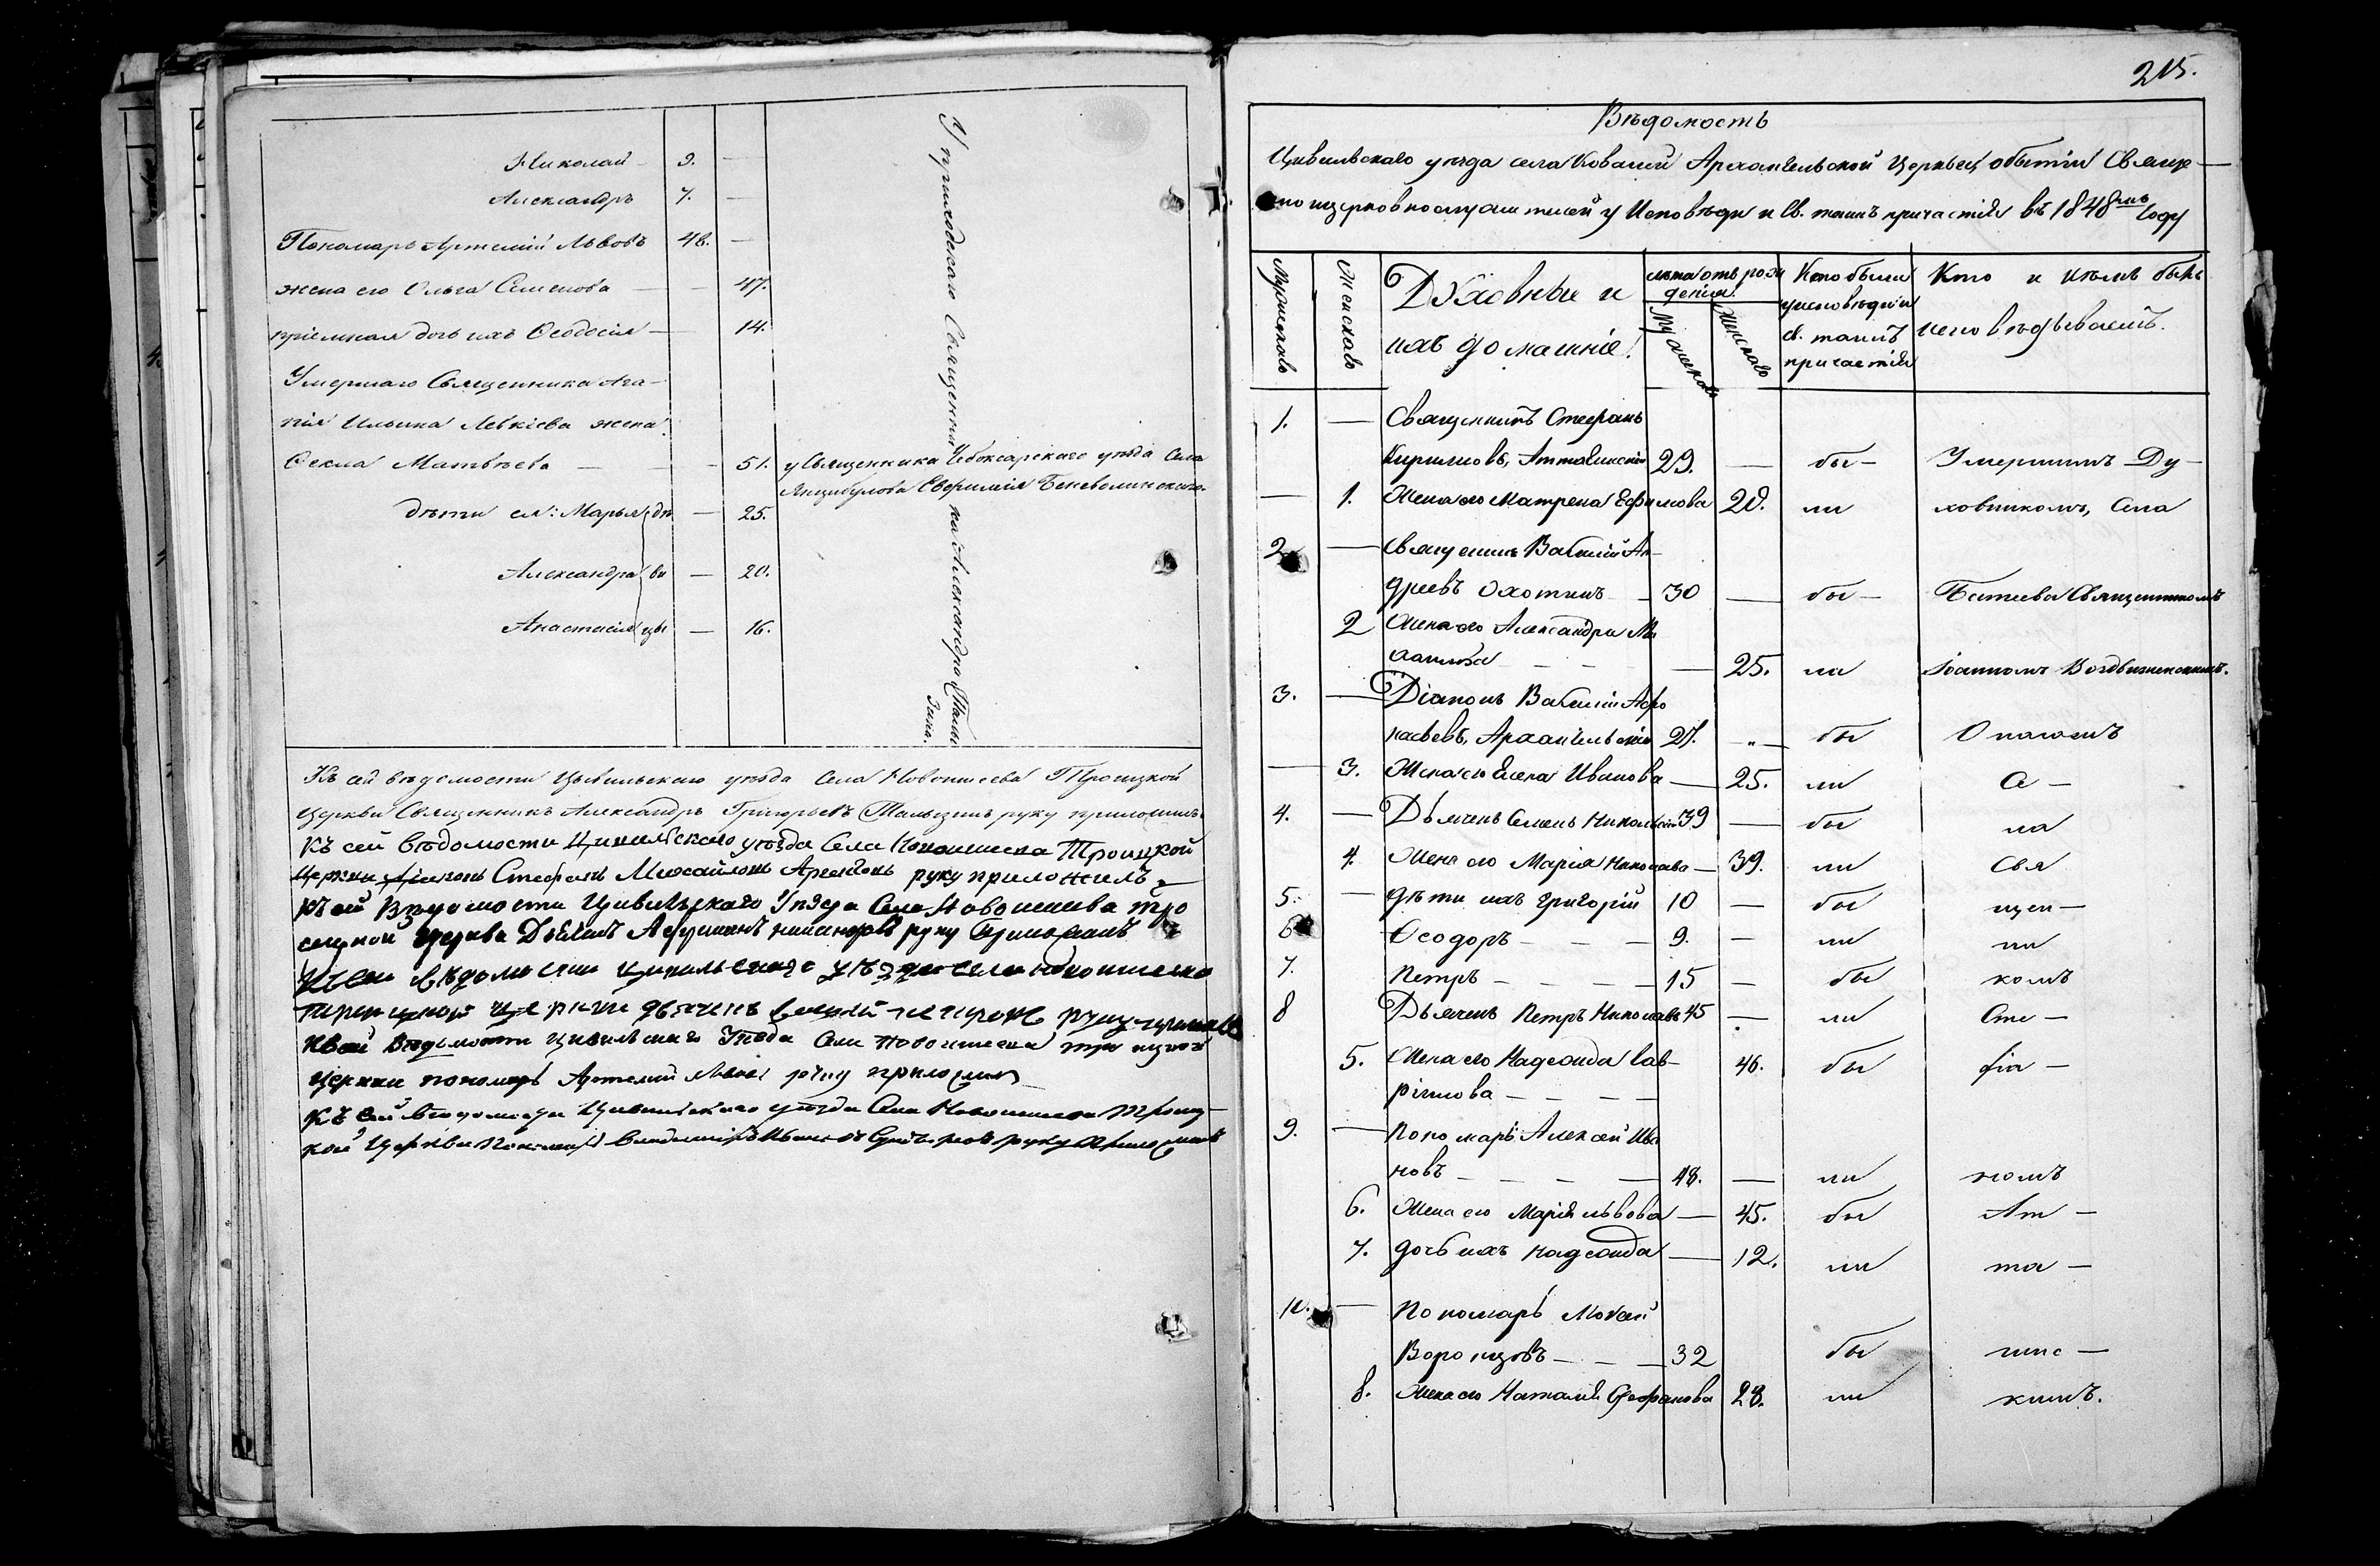 Николай — 9. —
Александръ 7. —
Пономарь Артемій Львовъ 48. —
жена его Ольга Семенова — — 47.
пріемная дочь ихъ Ѳеодосія — 14.
Умершаго Священника Ага-
пія Ильина Левкіева жена
Ѳекла Матвѣева — — 51. у Священника Чебоксарскаго уѣзда Села
Янцибулова Евфимія Беневолинскаго.
дѣти ея: Марья дѣ — 25.
Александра ви — 20.
Анастасія цы — 16.
У приходскаго Священника АлександраТалы-
зина.
Къ сей вѣдомости Цывильскаго уѣзда Села Новоишеева Троицкой
Церкви Священникъ Александръ Григорьевъ Талызинъ руку приложилъ.
Къ сей вѣдомости Цивильскаго уѣзда Села Новоишева Троицкой
Церкви Діаконъ Стефанъ Михайловъ руку приложилъ
Къ сей Вѣдомости Цивильскаго Уѣзда Села Новоишева тро
ицкой Церкви Дьячекъ руку приложилъ
Къ сей вѣдомости цивильскаго уѣзда села новоишева
троицкой церкви дьячекъ руку приложилъ
Къ сей Вѣдомости Цивильскаго Уѣзда Села Новоишева троицкой
Церкви пономарь Артемий Львовъ руку приложилъ
Къ сей вѣдомости Цивильскаго уѣзда Села Новоишева Троиц-
кой Церкви Пономарь Владимиръ Ивановъ руку приложилъ
215.
Вѣдомость
Цивильскаго уѣзда села Ковалей Архангельской Церкви, о бытіи Свяще-
нно церковнослужителей у Исповѣди и Св. таинъ причастія въ 1848мъ Году
Мужскаго Женскаго Духовные и ихъ домашніе. лѣта отъ рождения. Мужскаго Женскаго Кто были у исповѣди и св. таинъ причастія Кто и кѣмъ былъ исповѣдываемъ.
1. — Священникъ Стефанъ
Кириловъ, Атталинскій 29. — бы- Умершимъ Ду-
— 1. Жена его Матрена Ефимова 20. ли ховникомъ, Села
2. — Священникъ Василій Ан-
дреевъ Охотинъ — 30 — бы- Батеева Священникомъ
2 Жена его Александра Ми
хаилова — — — 25. ли Іоанномъ Воздвиженскимъ.
3. — Діаконъ Василій Афо
насьевъ, Архангельскій 27. — бы О налагемъ
— 3. Жена его Елена Иванова — 25. ли А —
4. — Дьячекъ Семенъ Никольскій 39 — бы на
4. Жена его Марія Николаева — 39. ли Свя
5. — дѣти ихъ Григорій 10 — бы щен —
6. Ѳеодоръ — — — 9. — ли ни
7. Петръ — — — 15 — бы комъ
8 Дьячекъ Петръ Николаевъ 45 — ли Сте —
5. Жена его Надежда Гав- 46. бы фа —
рилова — — — —
9. — Пономарь Алексей Ива
новъ — — — — 48. — ли номъ
6. Жена его Марія Львова — 45. бы Ат —
7. дочь ихъ Надежда — 12. ли та —
10. — Пономарь Мокей
Воронцовъ — — 32 бы линс —
8. Жена его Наталія Стефанова 28. ли кимъ.